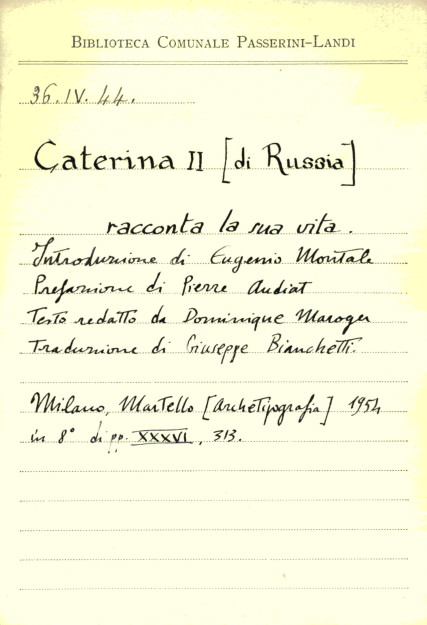 BIBLIOTECA COMUNALE PASSERINI-LANDI
36.IV.44.
Caterina II [di Russia]
racconta la sua vita.
Introduzione di Eugenio Montale
Prefazione di Pierre Audiat
Testo redatto da Dominique Maroger
Traduzione di Giuseppe Bianchetti.
Milano, Martello [Archetipografia] 1954
in 8° di pp. XXXVI, 313.